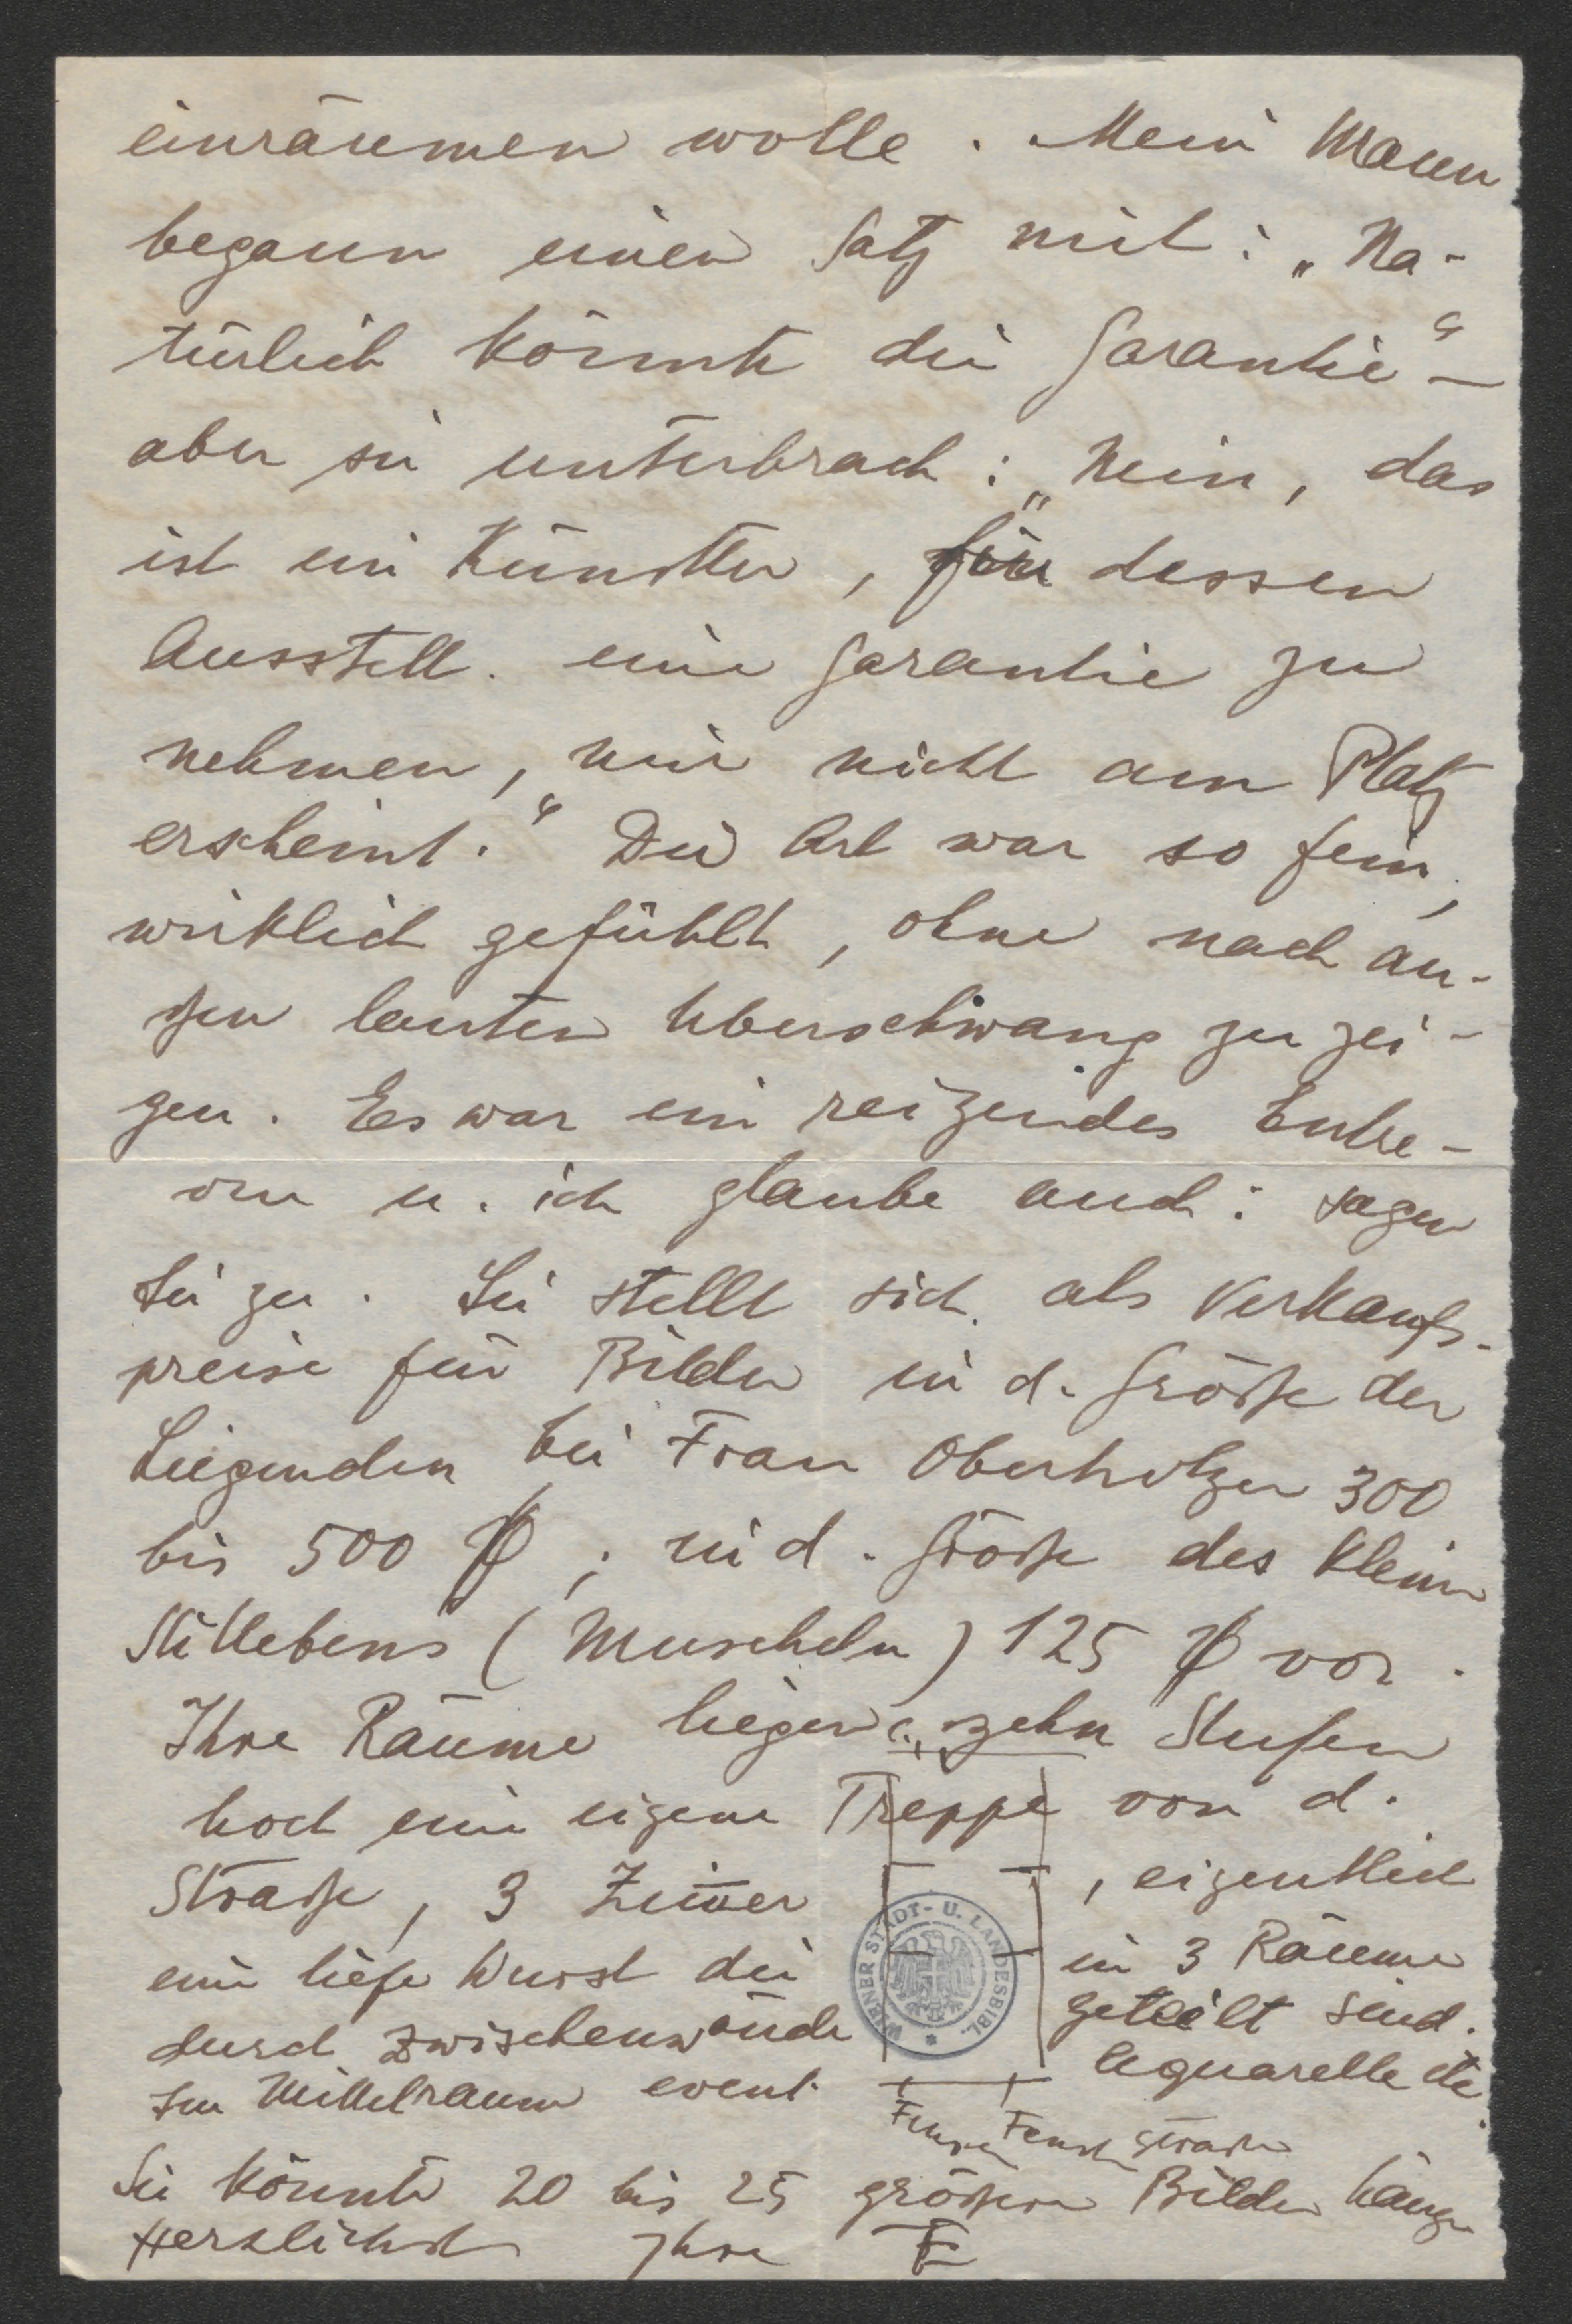 einräumen wolle. Mein Mann
begann einen Satz mit: „Na-
türlich könnte die Garantie“ –
aber sie unterbrach: „Nein, das
ist ein Künstler, für dessen
Ausstell. eine Garantie zu
nehmen, mir nicht am Platz
erscheint.“ Die Art war so fein,
wirklich gefühlt, ohne nach au-
ßen lauten Überschwang zu zei-
gen. Es war ein reizendes Entre-
vu u. ich glaube auch: sagen
Sie zu. Sie stellt sich als Verkaufs-
preise für Bilder in d. Größe der
Liegenden bei Frau Oberholzer 300
bis 500 $; in d. Größe des kleinen
Stillebens (Muscheln) 125 $ vor.
Ihre Räume liegen c. zehn Stufen
hoch eine eigene Treppe von d.
Straße, 3 Zimer , eigentlich
eine tiefe Wurst die in 3 Räume
durch Zwischenwände geteilt sind.
Im Mittelraum event. Aquarelle etc.
Fenster Fenster Straße
Sie könnte 20 bis 25 größere Bilder hängen
Herzlichst Ihre E
WIENER STADT- U. LANDESBIBL.